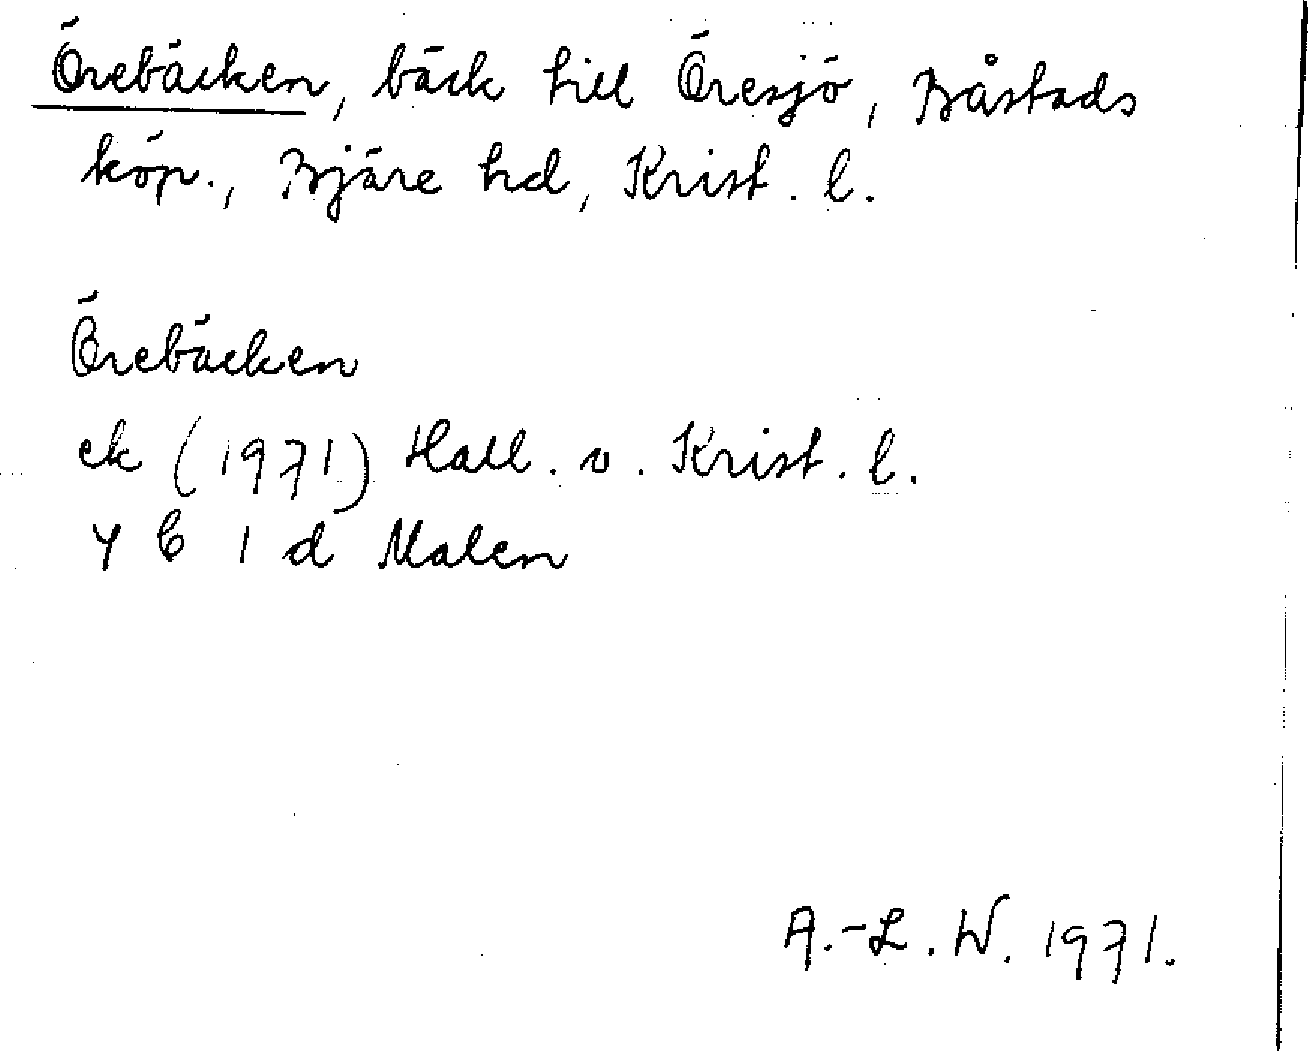 Örebäcken, bäck till Öresjö, Båstads
köp., Bjäre hd, Krist. l.
Örebäcken
ek (1971) Hall. o. Krist. l.
4 C 1 d Malen
A.-L. W. 1971.